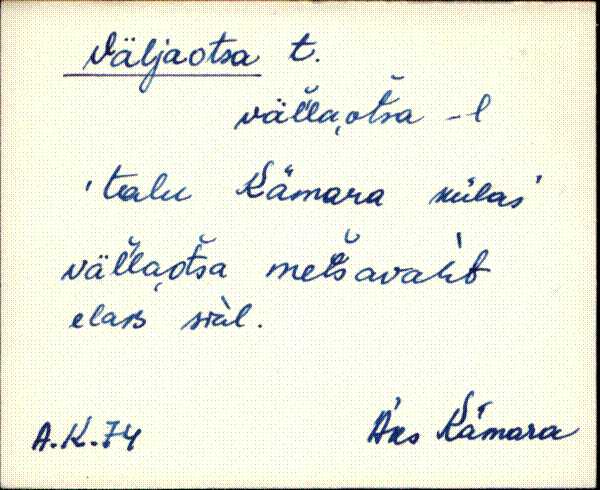 Väljaotsa t.
väl̆la͔ot̆sa -l
'talu Kämara külas'
väl̆la͔ot̆sa met̆savaht
elas sial.
A.K.74 Äks Kämara